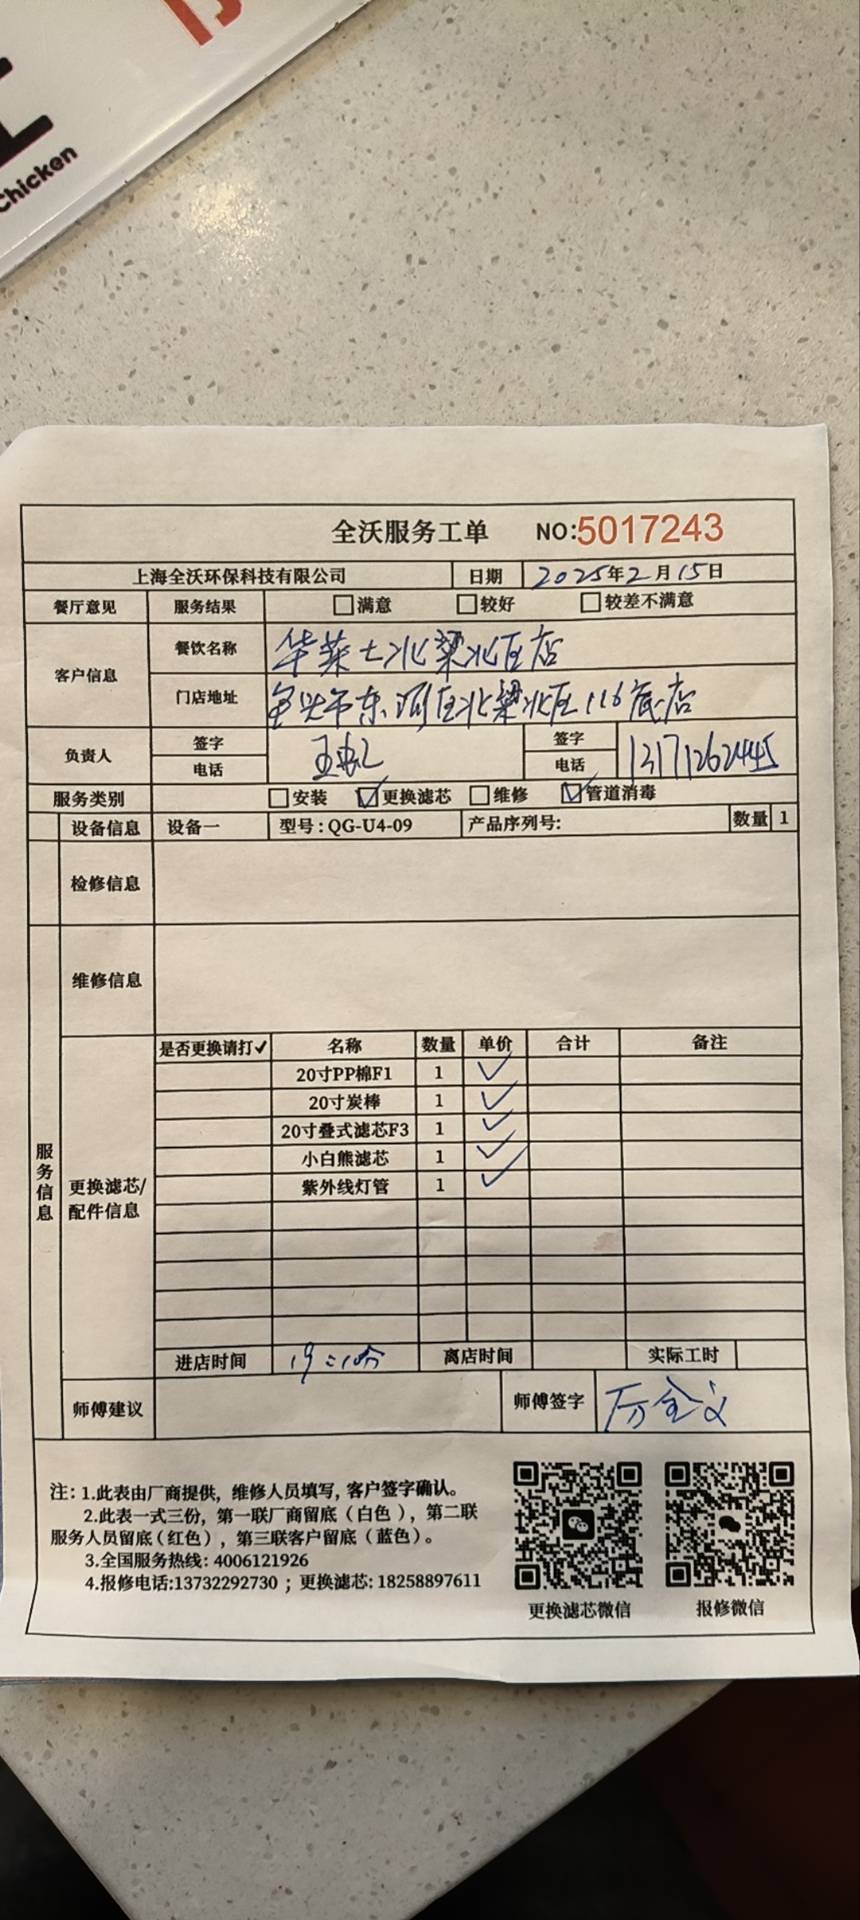 Chicken
全沃服务工单 NO:5017243
上海全沃环保科技有限公司 日期 2025年2月15日
餐厅意见 服务结果 满意 较好 较差不满意
客户信息
餐饮名称 华莱士北梁北区店
门店地址 东河区北梁北区116底店
负责人 签字 签字
电话 电话 13171262445
服务类别 安装 更换滤芯 维修 管道消毒
设备信息 设备一 型号:QG-U4-09 产品序列号: 数量 1
检修信息
维修信息
服务信息
更换滤芯/
配件信息
是否更换请打✓ 名称 数量 单价 合计 备注
20寸PP棉F1 1 ✓
20寸炭棒 1 ✓
20寸叠式滤芯F3 1 ✓
小白熊滤芯 1 ✓
紫外线灯管 1 ✓
进店时间 离店时间 实际工时
师傅建议 师傅签字
注: 1.此表由厂商提供, 维修人员填写, 客户签字确认。
2.此表一式三份, 第一联厂商留底 (白色), 第二联
服务人员留底 (红色), 第三联客户留底 (蓝色)。
3.全国服务热线: 4006121926
4.报修电话:13732292730 ; 更换滤芯: 18258897611
更换滤芯微信 报修微信